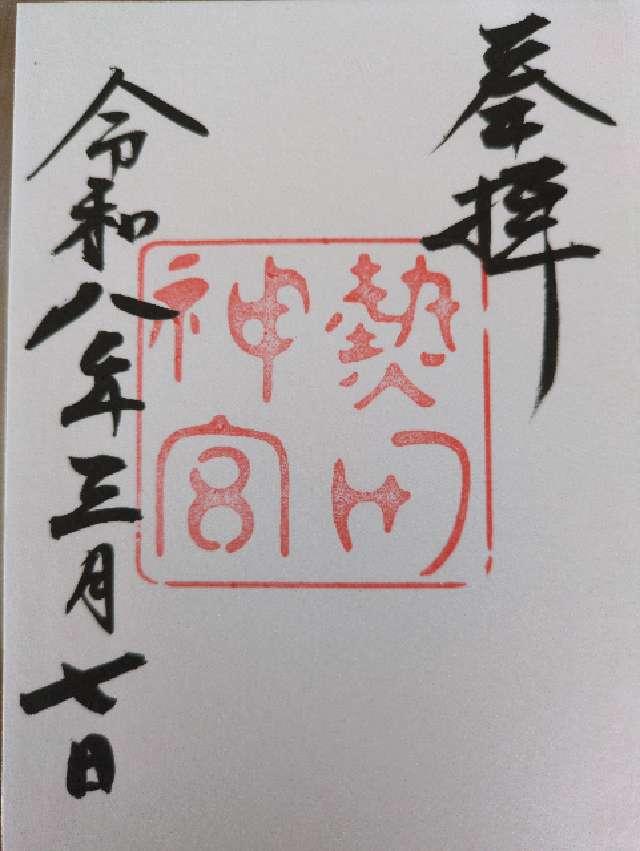 奉拝
熱田
神宮
令和八年三月七日